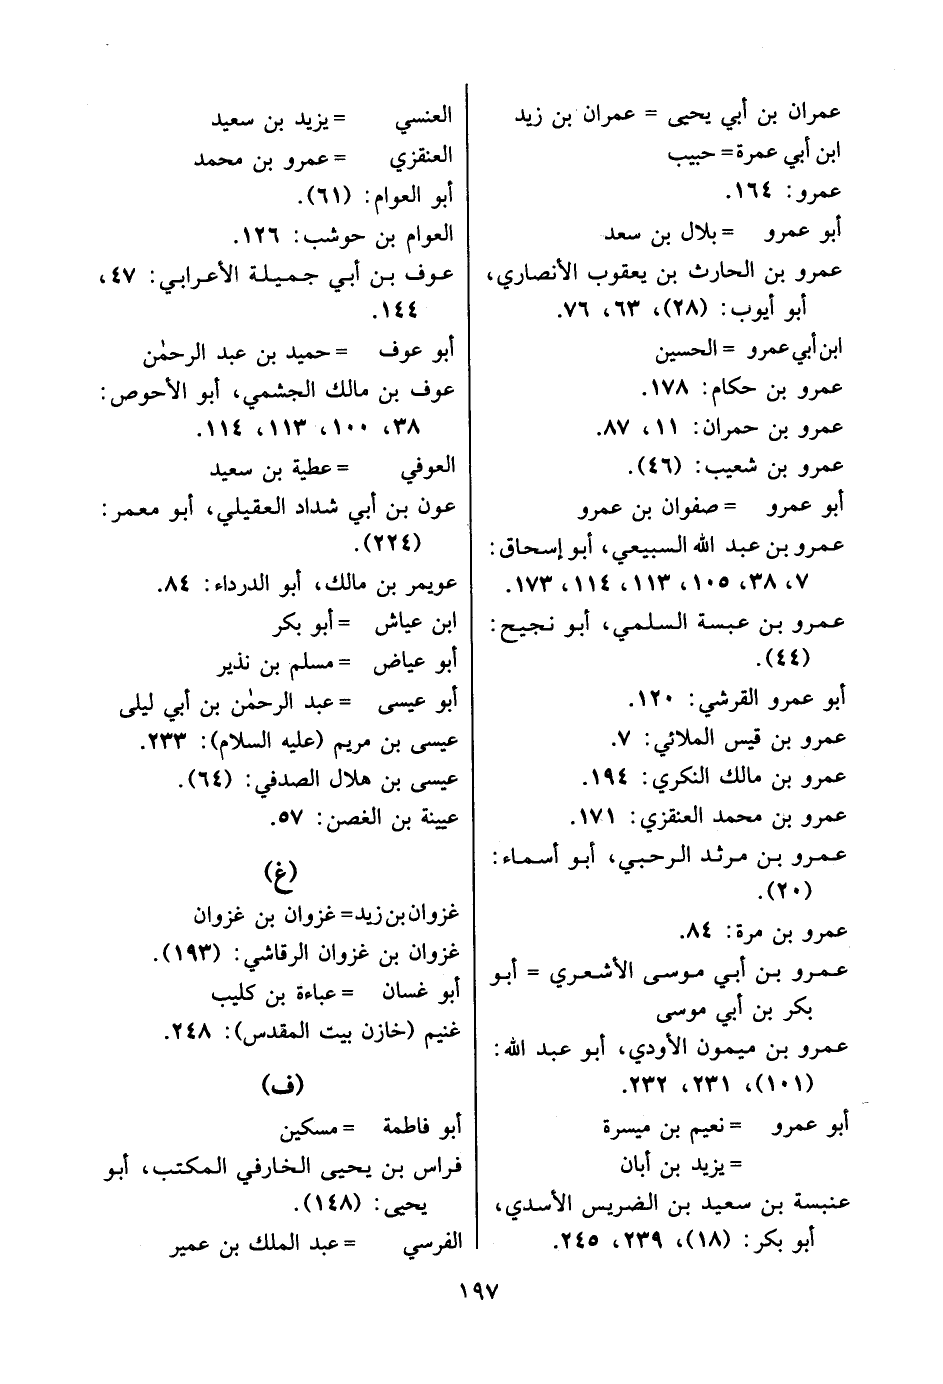 عمران بن أبي يحيى = عمران بن زيد
ابن أبي عمرة= حبيب
عمرو: ١٦٤.
أبو عمرو = بلال بن سعد
عمرو بن الحارث بن يعقوب الأنصاري،
أبو أيوب: (٢٨)، ٦٣، ٧٦.
ابن أبي عمرو = الحسين
عمرو بن حكام: ١٧٨.
عمرو بن حمران: ١١، ٨٧.
عمرو بن شعيب: (٤٦).
أبو عمرو = صفوان بن عمرو
عمرو بن عبد الله السبيعي، أبو إسحاق:
٧، ٣٨، ١٠٥، ١١٣، ١١٤، ١٧٣.
عمرو بن عبسة السلمي، أبو نجيح:
(٤٤).
أبو عمرو القرشي: ١٢٠.
عمرو بن قيس الملائي: ٧.
عمرو بن مالك النكري: ١٩٤.
عمرو بن محمد العنقزي: ١٧١.
عمرو بن مرثد الرحبي، أبو أسماء:
(٢٠).
عمرو بن مرة: ٨٤.
عمرو بن أبي موسى الأشعري = أبو
بكر بن أبي موسى
عمرو بن ميمون الأودي، أبو عبد الله:
(١٠١)، ٢٣١، ٢٣٢.
أبو عمرو = نعيم بن ميسرة
= يزيد بن أبان
عنبسة بن سعيد بن الضريس الأسدي،
أبو بكر: (١٨)، ٢٣٩، ٢٤٥.
العنسي = يزيد بن سعيد
العنقزي = عمرو بن محمد
أبو العوام: (٦١).
العوام بن حوشب: ١٢٦.
عوف بن أبي جميلة الأعرابي: ٤٧،
١٤٤.
أبو عوف = حميد بن عبد الرحمٰن
عوف بن مالك الجشمي، أبو الأحوص:
٣٨، ١٠٠، ١١٣، ١١٤.
العوفي = عطية بن سعيد
عون بن أبي شداد العقيلي، أبو معمر:
(٢٢٤).
عويمر بن مالك، أبو الدرداء: ٨٤.
ابن عياش = أبو بكر
أبو عياض = مسلم بن نذير
أبو عيسى = عبد الرحمٰن بن أبي ليلى
عيسى بن مريم (عليه السلام): ٢٣٣.
عيسى بن هلال الصدفي: (٦٤).
عيينة بن الغصن: ٥٧.
(غ)
غزوان بن زيد= غزوان بن غزوان
غزوان بن غزوان الرقاشي: (١٩٣).
أبو غسان = عباءة بن كليب
غنيم (خازن بيت المقدس): ٢٤٨.
(ف)
أبو فاطمة = مسكين
فراس بن يحيى الخارفي المكتب، أبو
يحيى: (١٤٨).
الفرسي = عبد الملك بن عمير
١٩٧